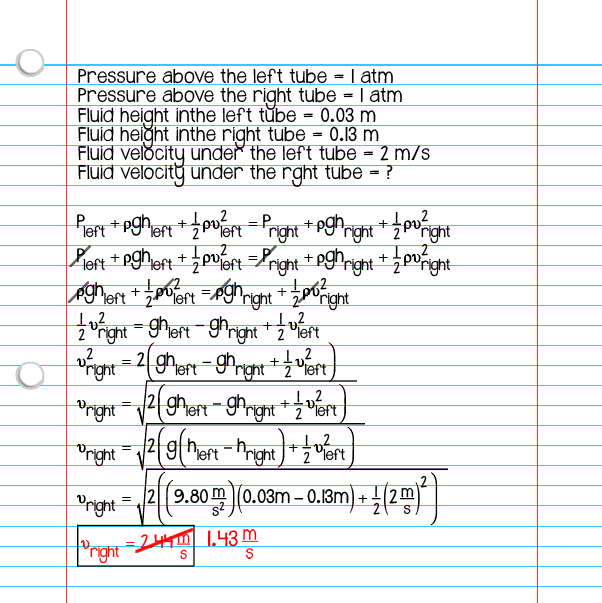 Pressure above the left tube = 1 atm
Pressure above the right tube = 1 atm
Fluid height inthe left tube = 0.03 m
Fluid height inthe right tube = 0.13 m
Fluid velocity under the left tube = 2 m/s
Fluid velocity under the rght tube = ?
P_left + ρgh_left + 1/2 ρυ²_left = P_right + ρgh_right + 1/2 ρυ²_right
P_left + ρgh_left + 1/2 ρυ²_left = P_right + ρgh_right + 1/2 ρυ²_right
ρgh_left + 1/2 ρυ²_left = ρgh_right + 1/2 ρυ²_right
1/2 υ²_right = gh_left − gh_right + 1/2 υ²_left
υ²_right = 2(gh_left − gh_right + 1/2 υ²_left)
υ_right = √(2(gh_left − gh_right + 1/2 υ²_left))
υ_right = √(2(g(h_left − h_right) + 1/2 υ²_left))
υ_right = √(2((9.80 m/s²)(0.03m − 0.13m) + 1/2 (2 m/s)²))
υ_right = 2.44 m/s 1.43 m/s